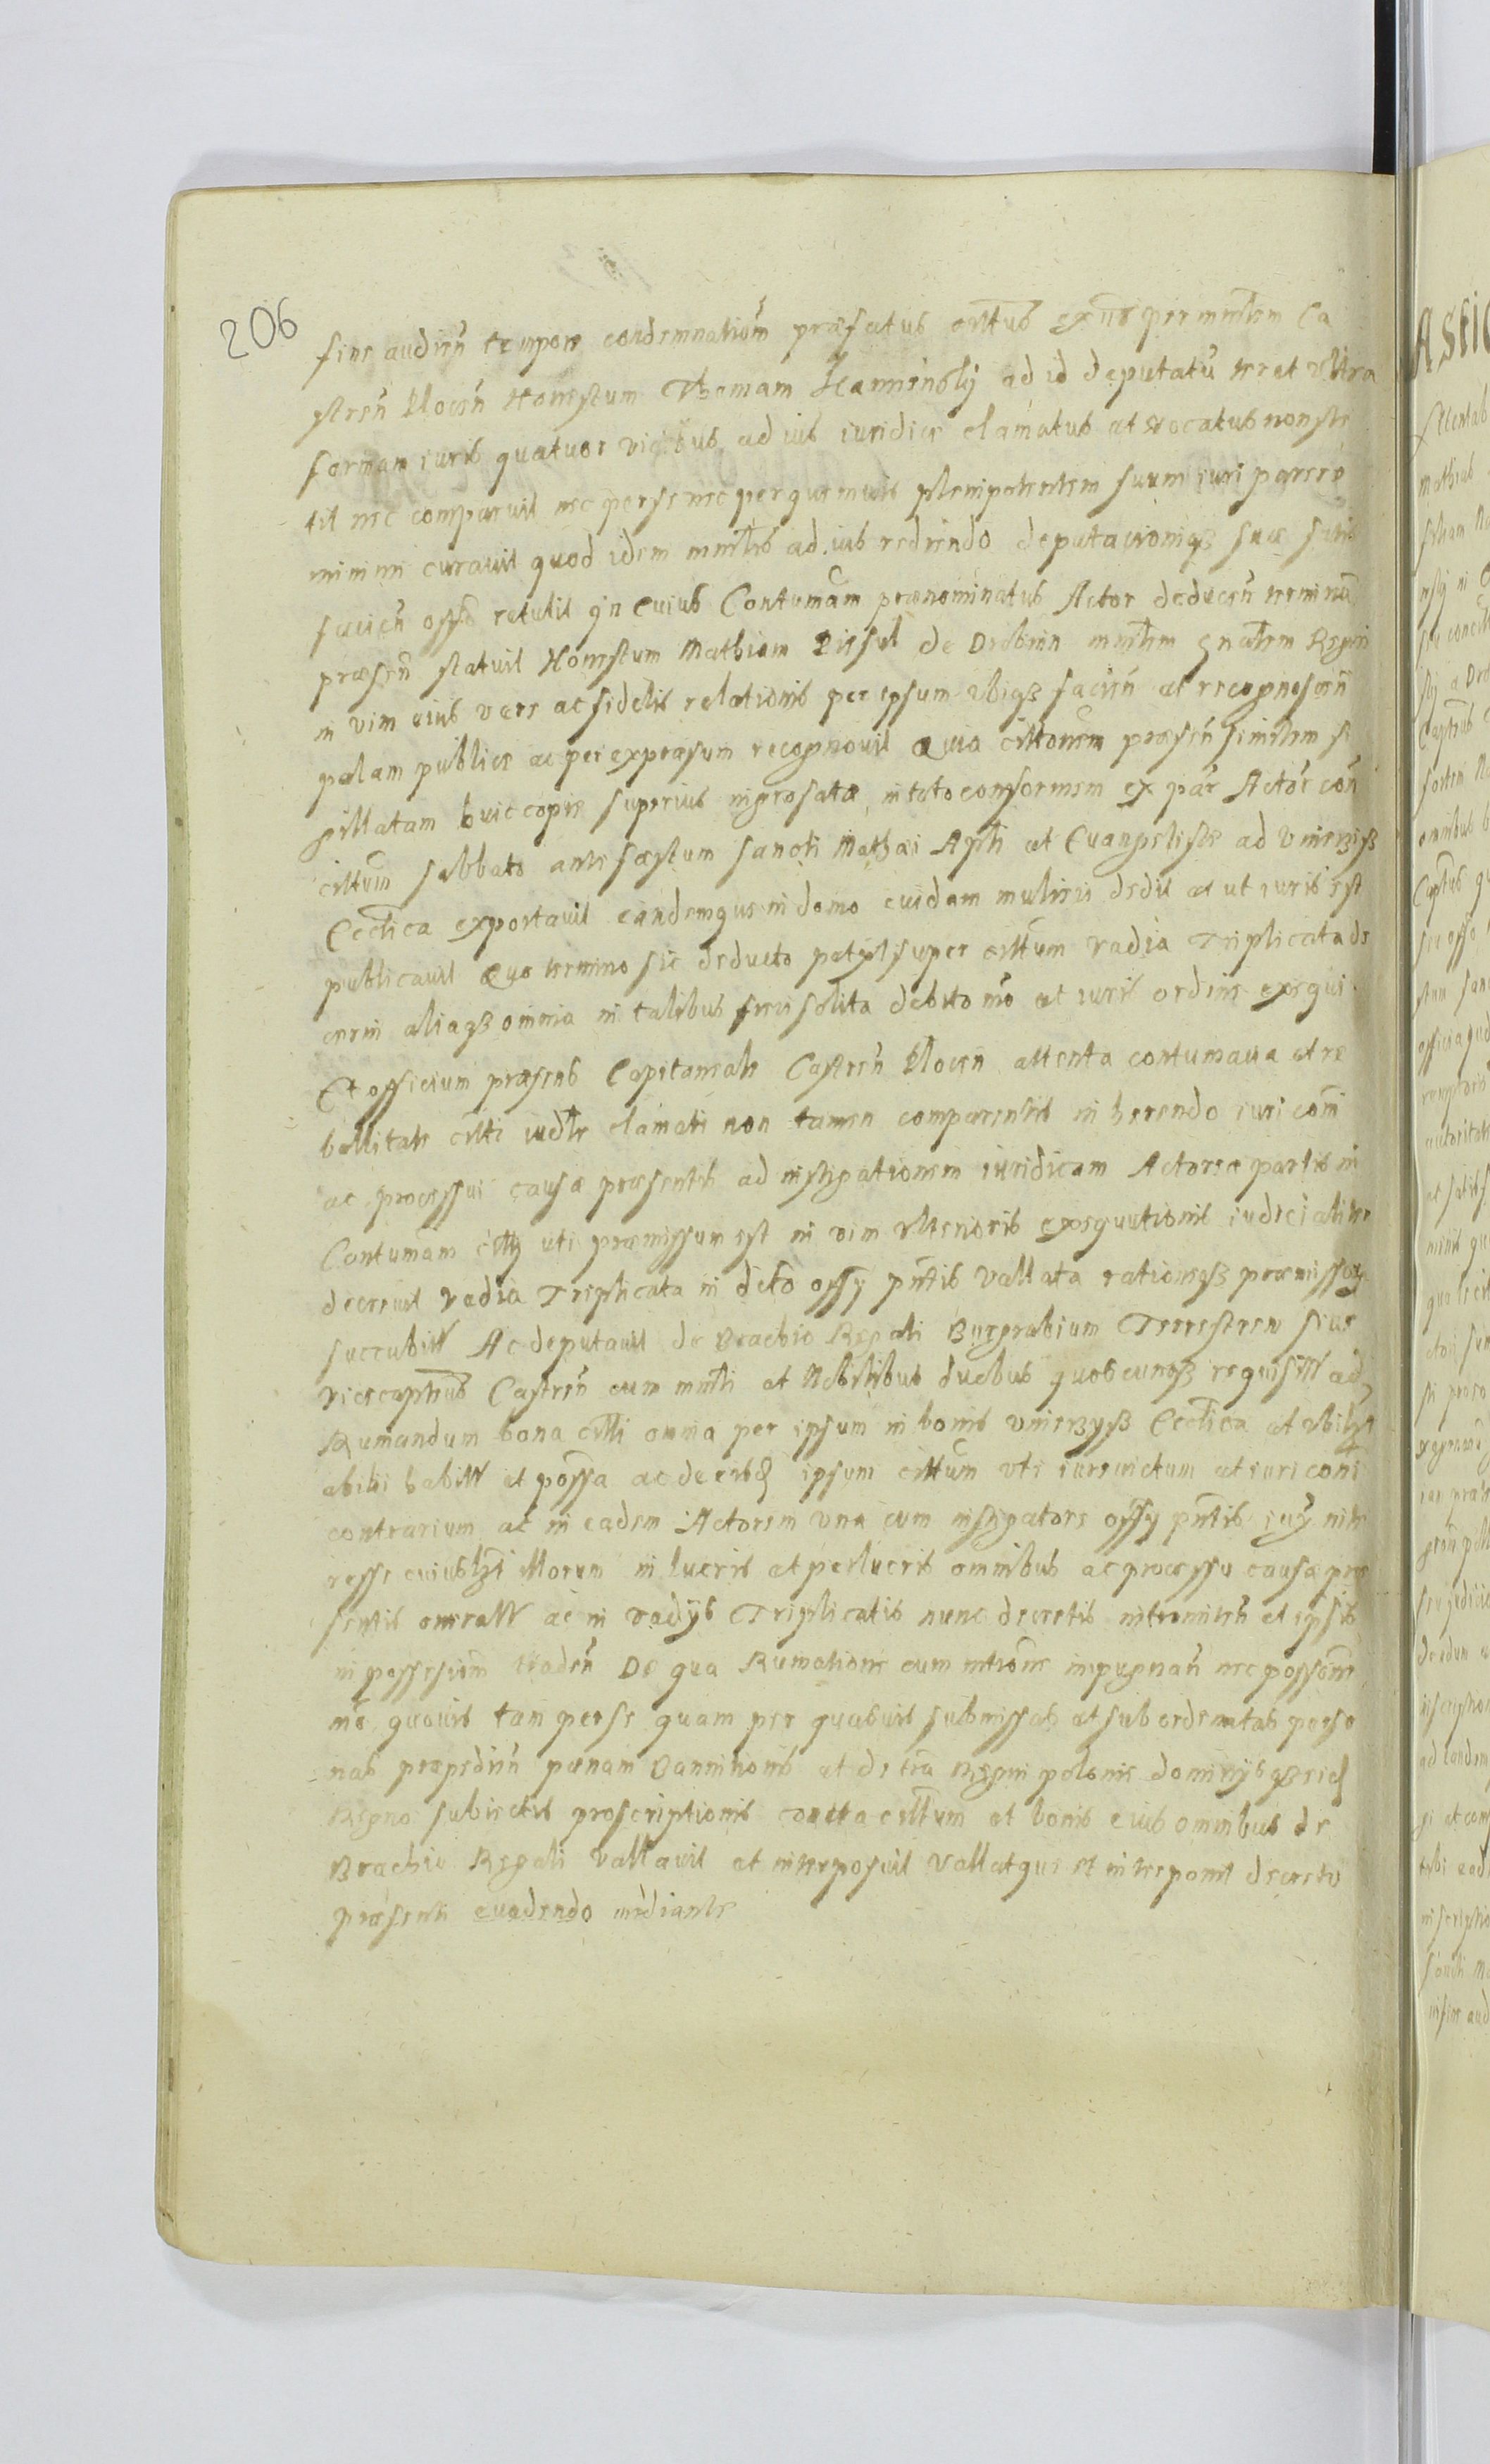 206
fine audien tempore condemnationum præfatus citatus ex nunc per ministlem Ca
stren Plocen Honestum Thomam ad id deputatum ter et ultra
formam iuris quatuor vicibus ad ius iuridice clamatus et vocatus non ste
tit nec comparuit nec per se nec per quemvis plenipotentem suum iuri parere
minimi curauit quod idem ministlis ad ius rediendo deputationiqz suæ satis
facien offo retulit In cuius Contumam prænominatus Actor deducen terminu
præsen statuit Honestum Mathiam de Drobnin ministlem gnalem Regni
in vim eius vere ac fidelis relationis per ipsum ubiqz facien et recognoscen
palam publice ac per expræsum recognouit Quia cittonem præsen similem si
gillatam huic copiæ superius ingrosatæ in toto conformem ex par Actor con
cittum sabbato ante fæstum sancti Mathæi Apli et Euangelistæ ad
Ecclica exportauit eandemque in domo cuidam mulieri dedit et ut iuris est
publicauit Quo termino sic deducto petyt super cittum vadia Triplicata de
cerni aliaqz omnia in talibus fieri solita debito mo et iuris ordine exequi
Et officium præsens Capitaneale Castren Plocen attenta contumacia et re
bellitate citti iudlr clamati non tamen comparentis in herendo iuri com
ac processui causæ præsentis ad instigationem iuridicam Actoreæ partis in
Contumam citti uti præmissum est in vim ulterioris exequutionis iudicialiter
decreuit vadia Triplicata in dcto offy pntis vallata rationeqz præmissor
succubitt Ac deputauit de Brachio Regali Burgrabium Terrestren siue
vicecaptneus Castren cum mnstli et Nobilibus duobus quoscunqz requisitt ad
Rumandum bona citti omnia per ipsum in bonis Ecclica et ubilzt
alibi habitt et possa ac de eisd ipsum cittum uti iure victum et iuri coni
contrarium ac in eadem Actorem una cum instigatore offy pntis inte
resse cuiuslzt illorum in lucris et perlucris omnibus ac processu causæ præ
sentis oneratt ac in vadijs Triplicatis nunc decretis intromitten et ipsis
in possessiom traden De qua Rumatione cum intione impugnan nec possone
mo quouis tam per se quam per quasuis submissas et subordinatas perso
nas præpedien pænam Bannitionis et de eia Regni poloniæ dominijsqz eid
Regno subiectis proscriptionis contra cittum et bonis eius omnibus de
Brachio Regali vallauit et interposuit vallatque et interponit decreto
præsenti euadendo mediante